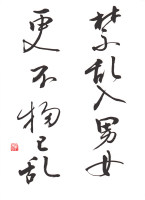 禁乱入男女
更不物已乱